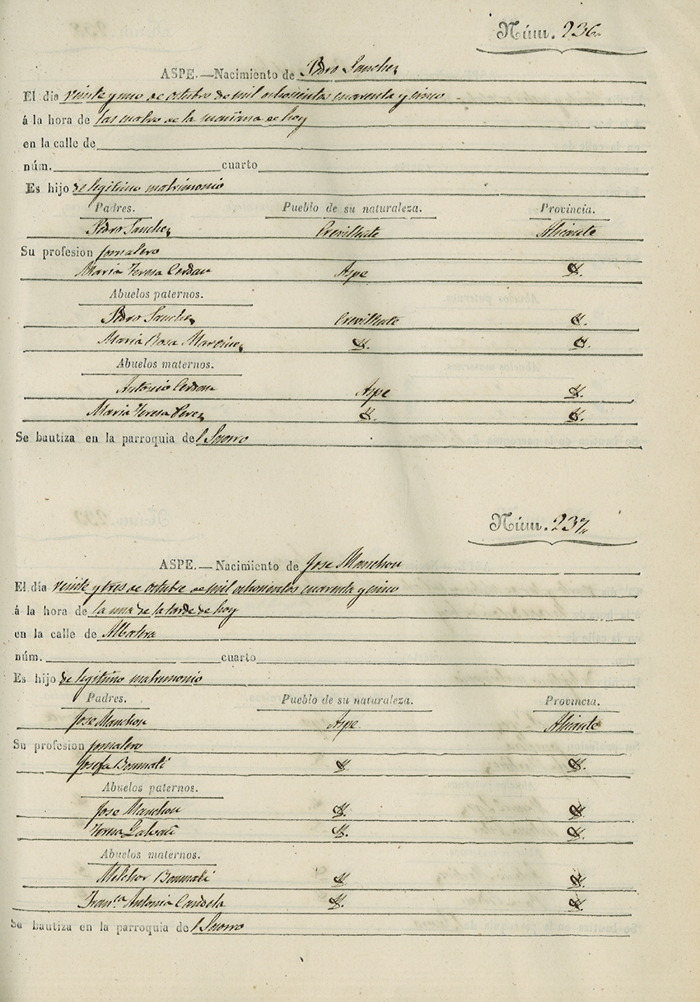 Núm. 236
ASPE.—Nacimiento de Pedro Sanchez
El día veinte y uno de octubre de mil ochocientos cuarenta y cinco
á la hora de las cuatro de la mañana de hoy
en la calle de
núm. cuarto
Es hijo de legitimo matrimonio
Padres. Pueblo de su naturaleza. Provincia.
Pedro Sanchez Crevillente Alicante
Su profesion jornalero
Maria Teresa Cerdan Aspe
Abuelos paternos.
Pedro Sanchez Crevillente
Maria Rosa Martinez
Abuelos maternos.
Antonio Cerdan Aspe
Maria Teresa Perez
Se bautiza en la parroquia del Socorro
Núm. 237
ASPE.—Nacimiento de Jose Manchon
El día veinte y tres de octubre de mil ochocientos cuarenta y cinco
á la hora de la una de la tarde de hoy
en la calle de Albatera
núm. cuarto
Es hijo de legitimo matrimonio
Padres. Pueblo de su naturaleza. Provincia.
Jose Manchon Aspe Alicante
Su profesion jornalero
Josefa Bonmati
Abuelos paternos.
Jose Manchon
Teresa
Abuelos maternos.
Melchor Bonmati
Franca Antonia Candela
Se bautiza en la parroquia del Socorro